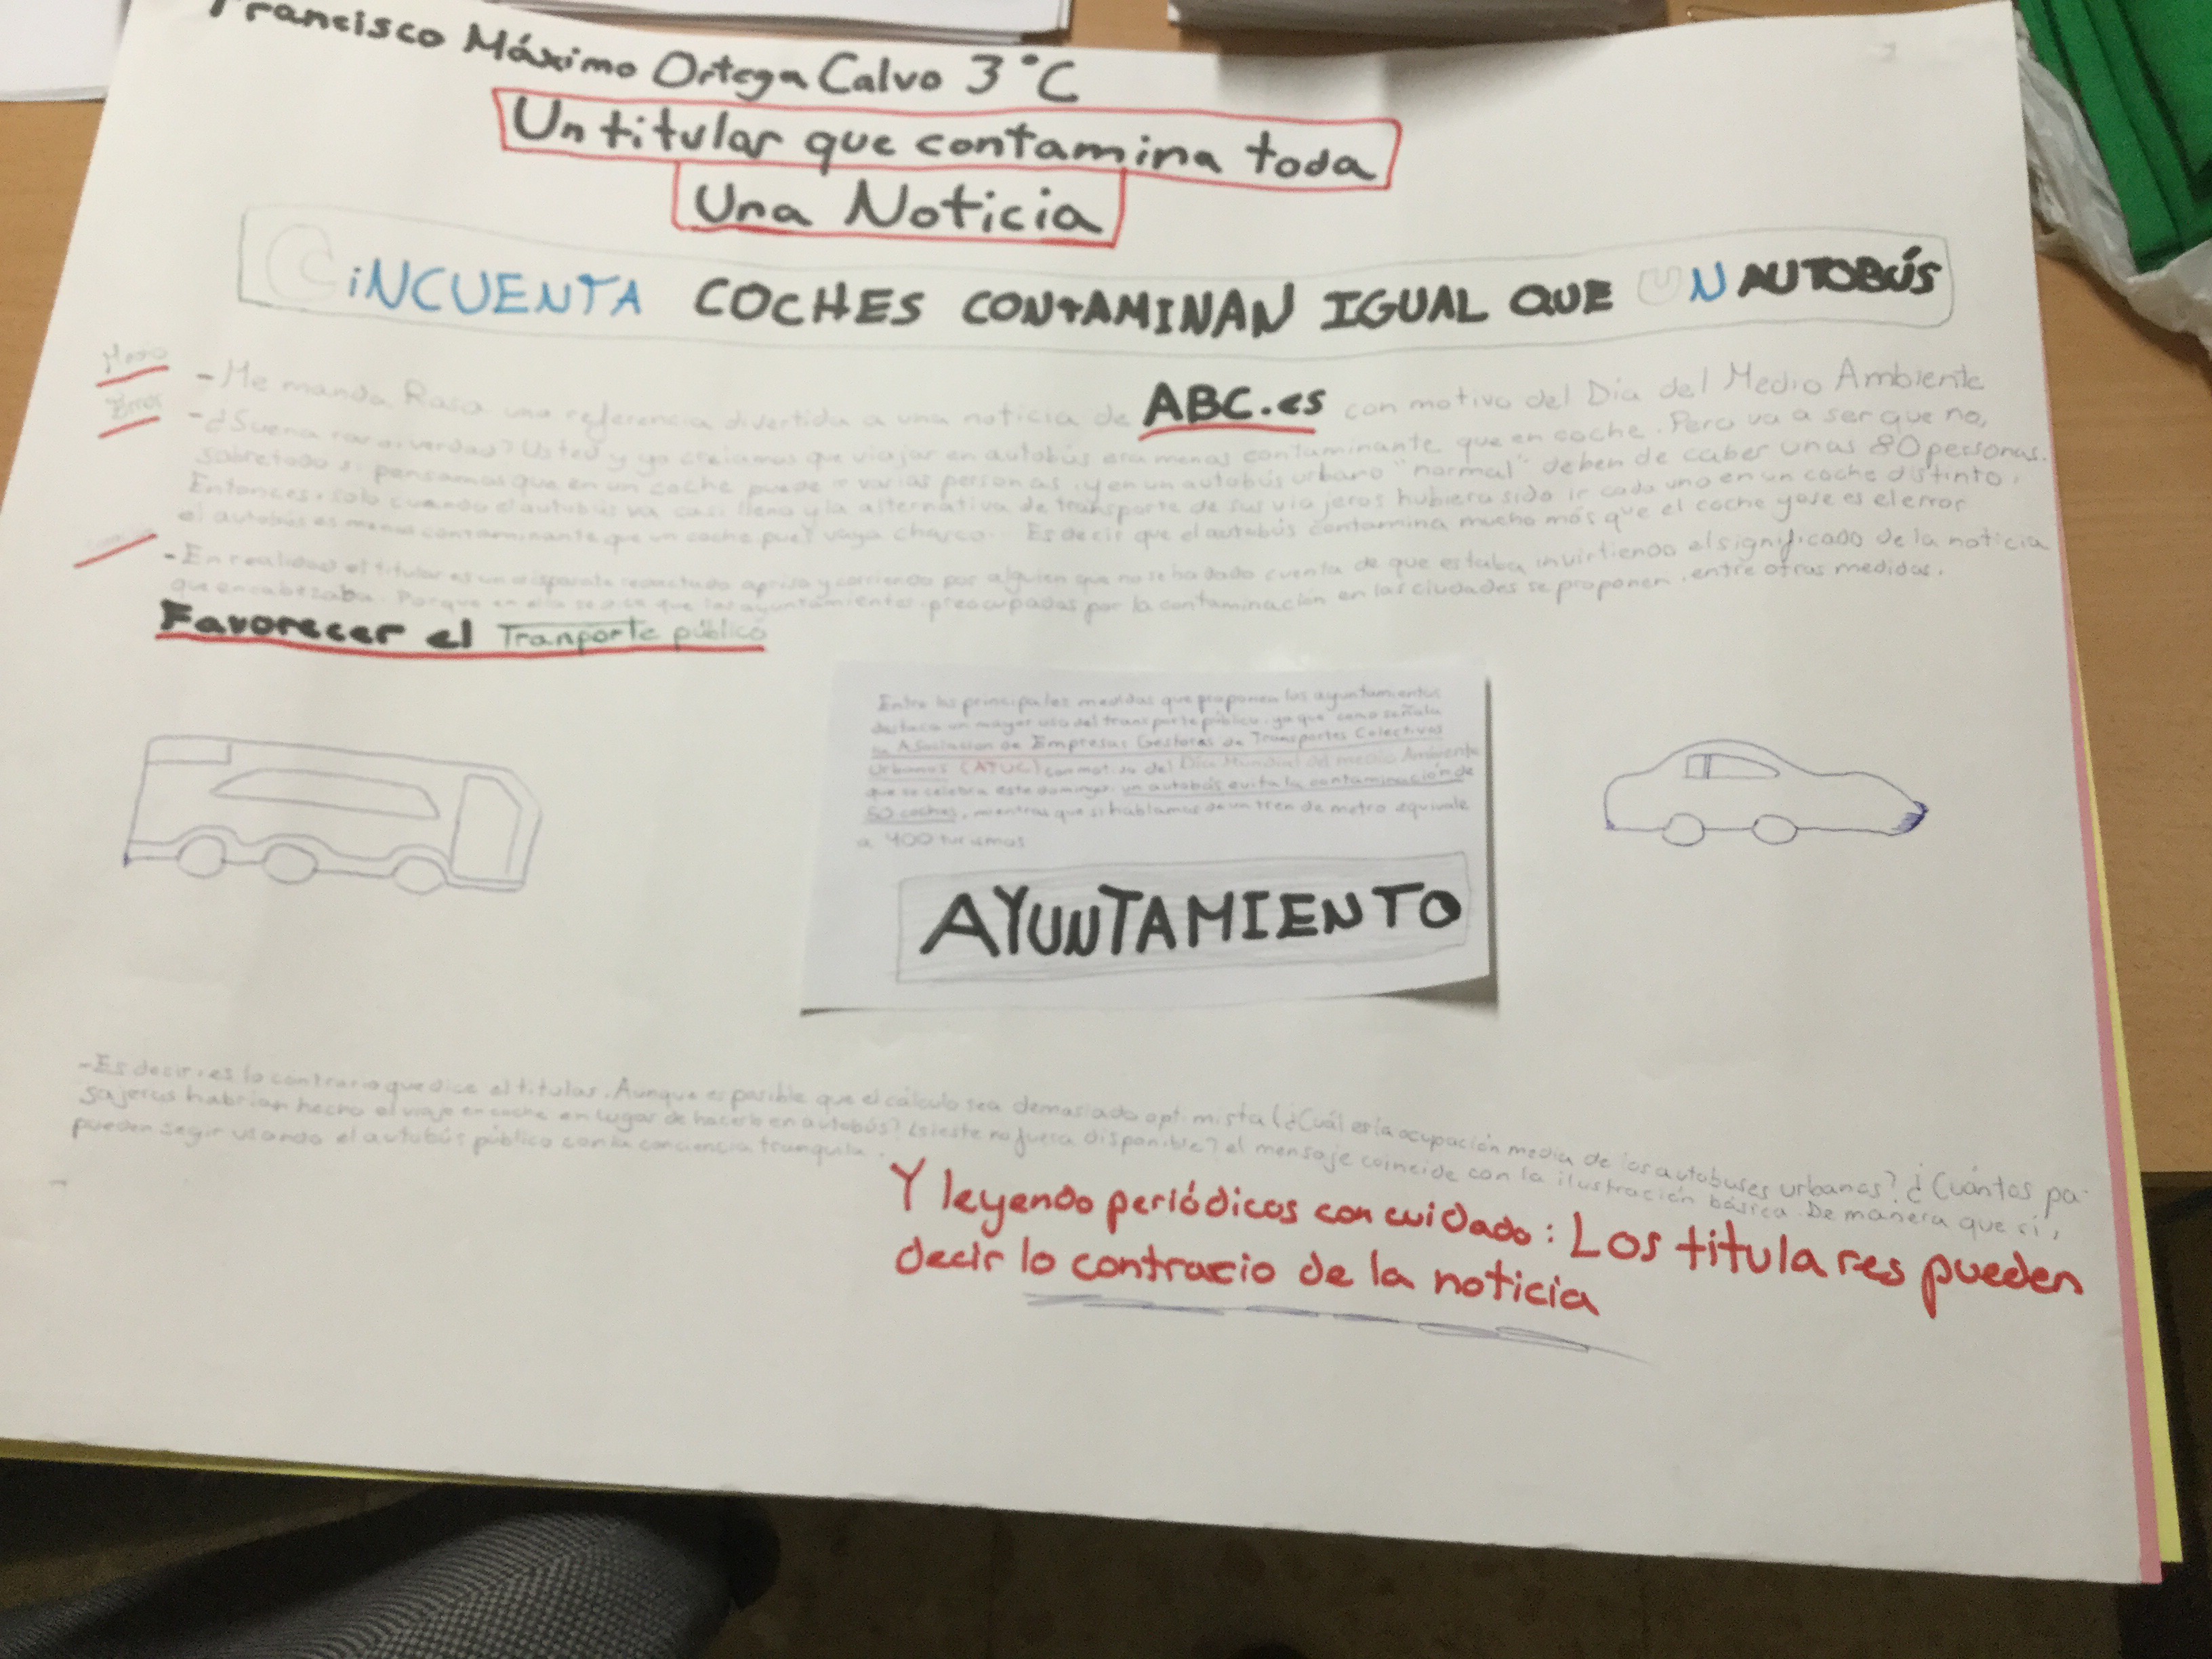 Francisco Máximo Ortega Calvo 3°C
Un titular que contamina toda
Una Noticia
CiNCUENTA COCHES CONTAMINAN IGUAL QUE UN AUTOBÚS
Medio
- Me manda Rosa una referencia divertida a una noticia de ABC.es con motivo del Día del Medio Ambiente
Error
- ¿Suena raro verdad? Usted y yo creiamos que viajar en autobús era menos contaminante que en coche. Pero va a ser que no,
sobretodo si pensamos que en un coche puede ir varias personas, y en un autobús urbano "normal" deben de caber unas 80 personas.
Entonces, solo cuando el autobús va casi lleno y la alternativa de transporte de sus viajeros hubiera sido ir cada uno en un coche distinto,
el autobús es menos contaminante que un coche pues vaya chasco... Es decir que el autobús contamina mucho más que el coche yose es el error
- En realidad el titular es un disparate redactado aprisa y corriendo por alguien que no se ha dado cuenta de que estaba invirtiendo el significado de la noticia
que encabezaba. Porque en ella se dice que los ayuntamientos preocupados por la contaminación en las ciudades se proponen, entre otras medidas,
Favorecer el Tranporte público
Entre las principales medidas que proponen los ayuntamientos
destaca un mayor uso del transporte público, ya que como señala
la Asociacion de Empresas Gestoras de Transportes Colectivos
Urbanos (ATUC) con motivo del Día Mundial del medio Ambiente
que se celebra este domingo, un autobús evita la contaminación de
50 coches, mientras que si hablamos de un tren de metro equivale
a 400 turismos
AYUNTAMIENTO
- Es decir, es lo contrario que dice el titular. Aunque es posible que el cálculo sea demasiado optimista (¿Cuál es la ocupación media de los autobuses urbanos? ¿Cuántos pa-
sajeros habrían hecho el viaje en coche en lugar de hacerlo en autobús? si este no fuera disponible? el mensaje coincide con la ilustración básica. De manera que sí,
pueden segir usando el autobús público con la conciencia tranquila.
Y leyendo periódicos con cuidado: Los titulares pueden
decir lo contrario de la noticia